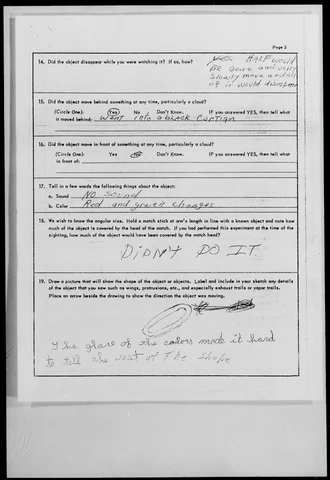 Page 3
14. Did the object disappear while you were watching it? If so, how?
HALF would
be gone and
slowly move
of it would disappear
15. Did the object move behind something at any time, particularly a cloud?
(Circle One): Yes No Don't Know. If you answered YES, then tell what
it moved behind: went into a black Curtian
16. Did the object move in front of something at any time, particularly a cloud?
(Circle One): Yes No Don't Know. If you answered YES, then tell what
it moved in front of:
17. Tell in a few words the following things about the object:
a. Sound NO sound
b. Color Red and green changes
18. We wish to know the angular size. Hold a match stick at arm's length in line with a known object and note how
much of the object is covered by the head of the match. If you had performed this experiment at the time of the
sighting, how much of the object would have been covered by the match head?
DIDN'T DO IT.
19. Draw a picture that will show the shape of the object or objects. Label and include in your sketch any details
of the object that you saw such as wings, protrusions, etc., and especially exhaust trails or vapor trails.
Place an arrow beside the drawing to show the direction the object was moving.
The glare of the colors made it hard
to tell the rest of The shape